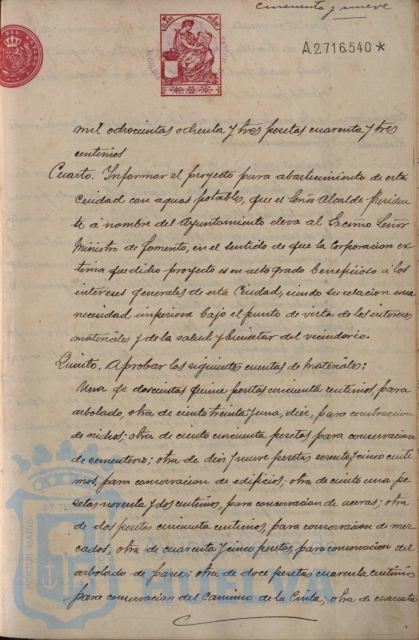 cincuenta y nueve
A.2.716.540*
mil ochocientas ochenta y tres pesetas cuarenta y tres
centimos
Cuarto. Informar el proyecto para abastecimiento de esta
Ciudad con aguas potables, que el Señor Alcalde Presiden-
te á nombre del Ayuntamiento eleva al Excmo Señor
Ministro de Fomento, en el sentido de que la Corporacion es-
tima que dicho proyecto es en alto grado beneficioso á los
intereses generales de esta Ciudad, siendo su relacion una
necesidad imperiosa bajo el punto de vista de los intereses
materiales y de la salud y bienestar del vecindario.
Quinto. Aprobar las siguientes cuentas de materiales:
Una de doscientas quince pesetas cincuenta centimos, para
arbolado, otra de ciento treinta y una, diez, para construccion
de nichos; otra de ciento cincuenta pesetas para conservacion
de cementerio; otra de diez y nueve pesetas sesenta y cinco centi-
mos, para conservacion de edificios; otra de ciento una pe-
setas noventa y dos centimos, para conservacion de aceras; otra
de dos pesetas cincuenta centimos, para conservacion de mer-
cados, otra de cuarenta y cinco pesetas, para conservacion del
arbolado de paseos; otra de doce pesetas cuarenta centimos
para conservacion del Camino de la Cinta; otra de cuarenta